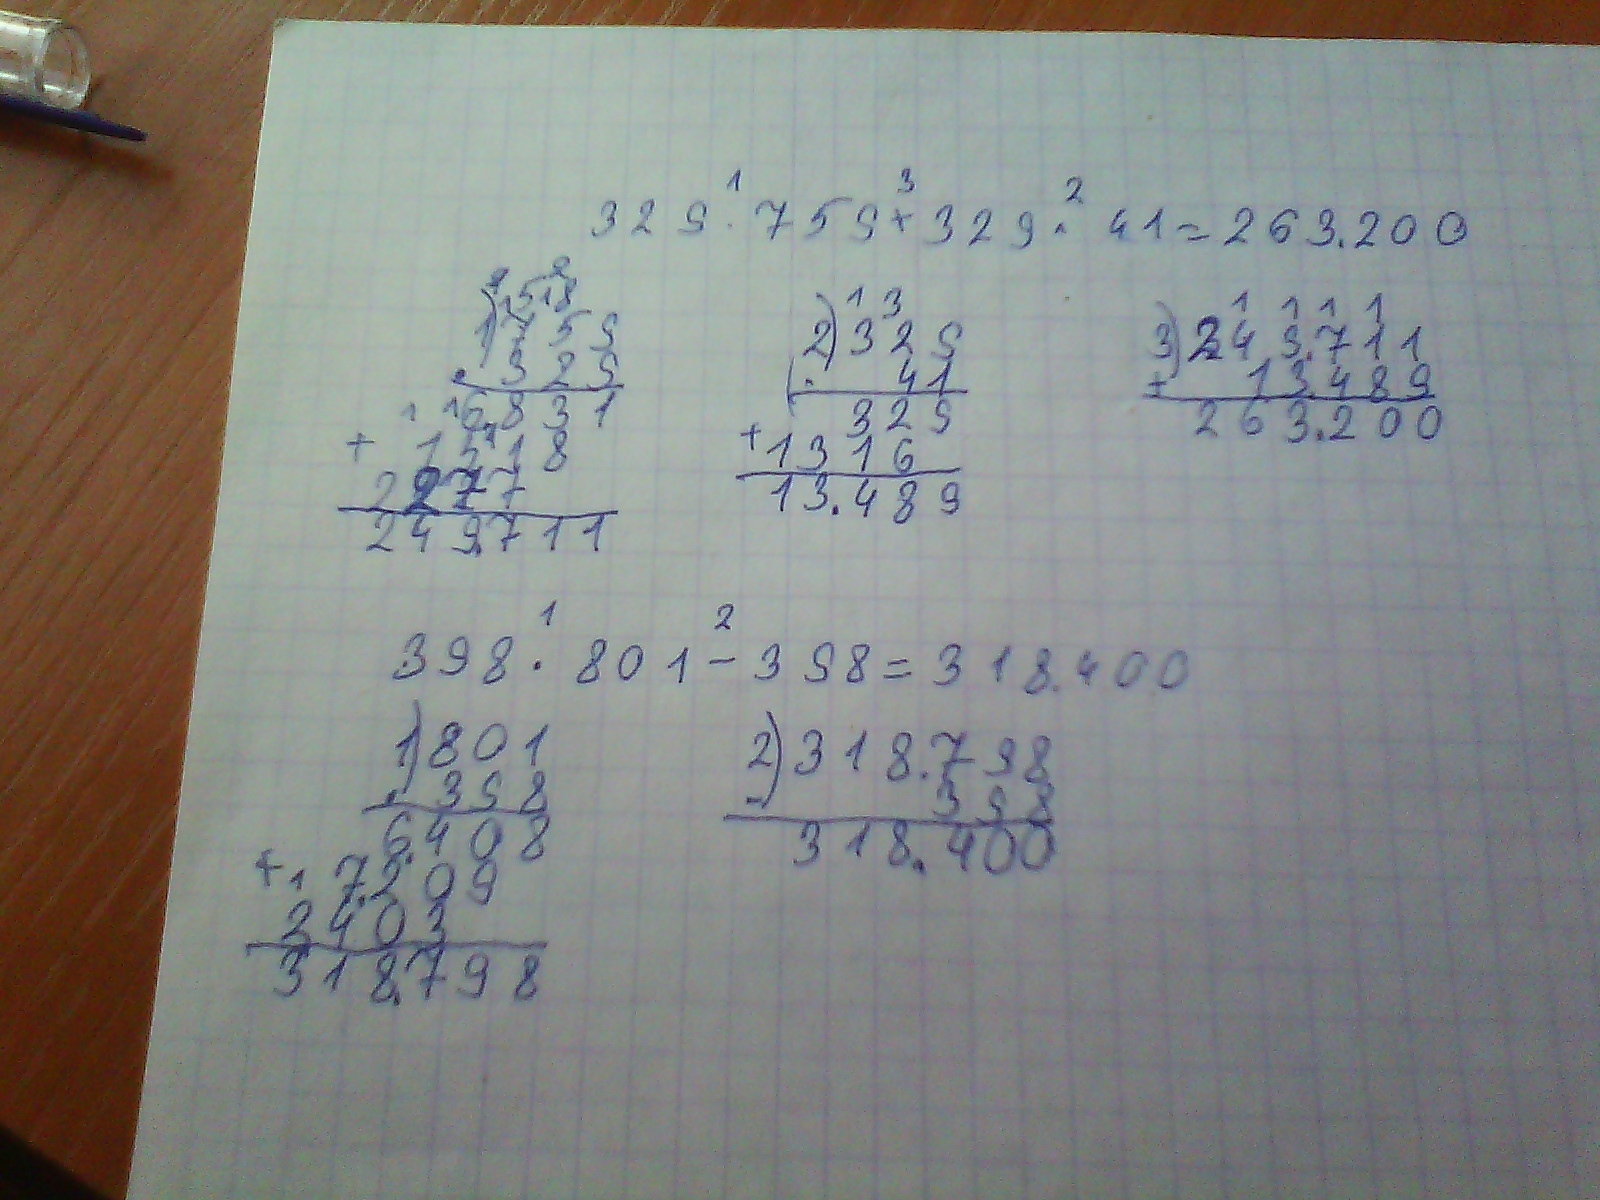 329 · 759 + 329 · 41 = 263.200
1) 759
· 329
6.831
+ 1518
2277
249.711
2) 329
· 41
329
+ 1316
13.489
3) 249.711
+ 13.489
263.200
398 · 801 - 398 = 318.400
1) 801
· 398
6.408
+ 7.209
2403
318.798
2) 318.798
- 398
318.400